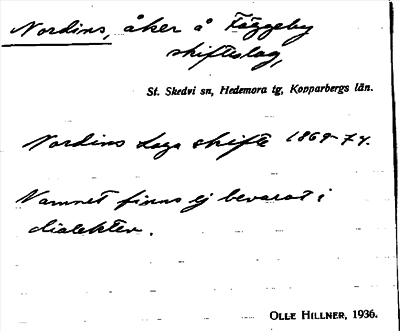 Nordins, åker å Fäggeby
skifteslag,
St. Skedvi sn, Hedemora tg, Kopparbergs län.
Nordins Laga skifte 1869-74.
Namnet finns ej bevarat i
dialekten.
OLLE HILLNER, 1936.